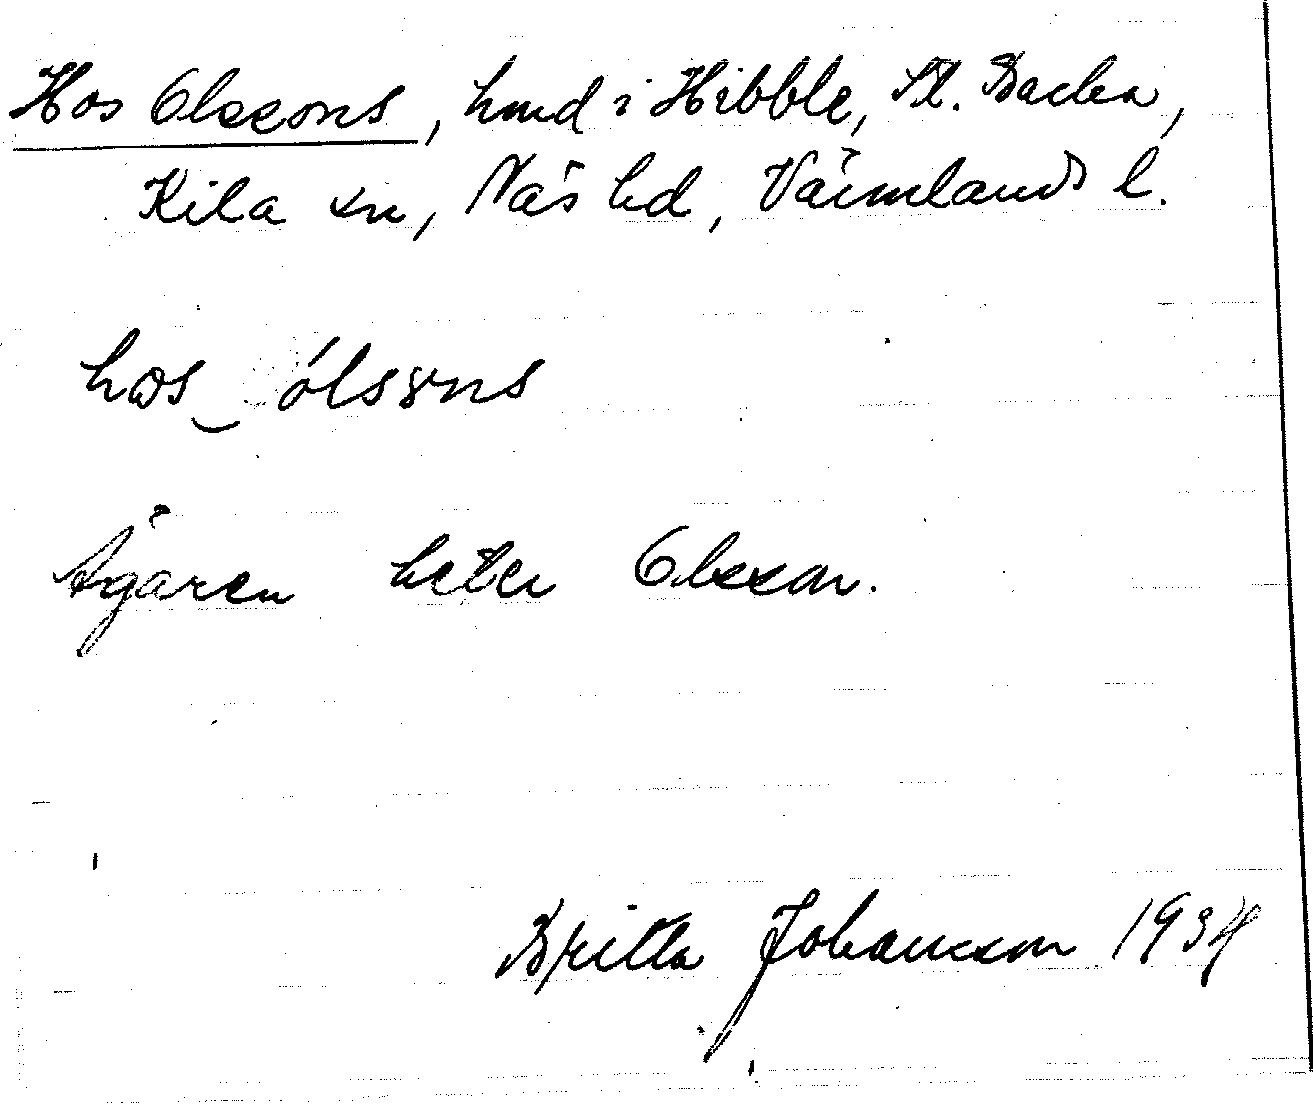 Hos Olssons, hmd i Hibble, St. Backa,
Kila sn, Näs hd, Värmlands l.
hos ólssns
Ägaren heter Olsson.
Britta Johansson 1934